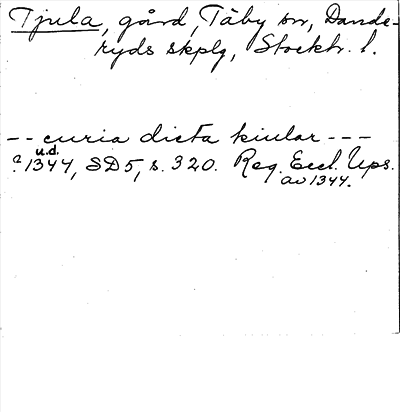 Tjula, gård, Täby sn, Dande-
ryds skplg, Stockh. l.
-- curia dicta kiular ---
u.d.
? 1344, SD 5, s. 320. Reg. Eccl. Ups.
av 1344.